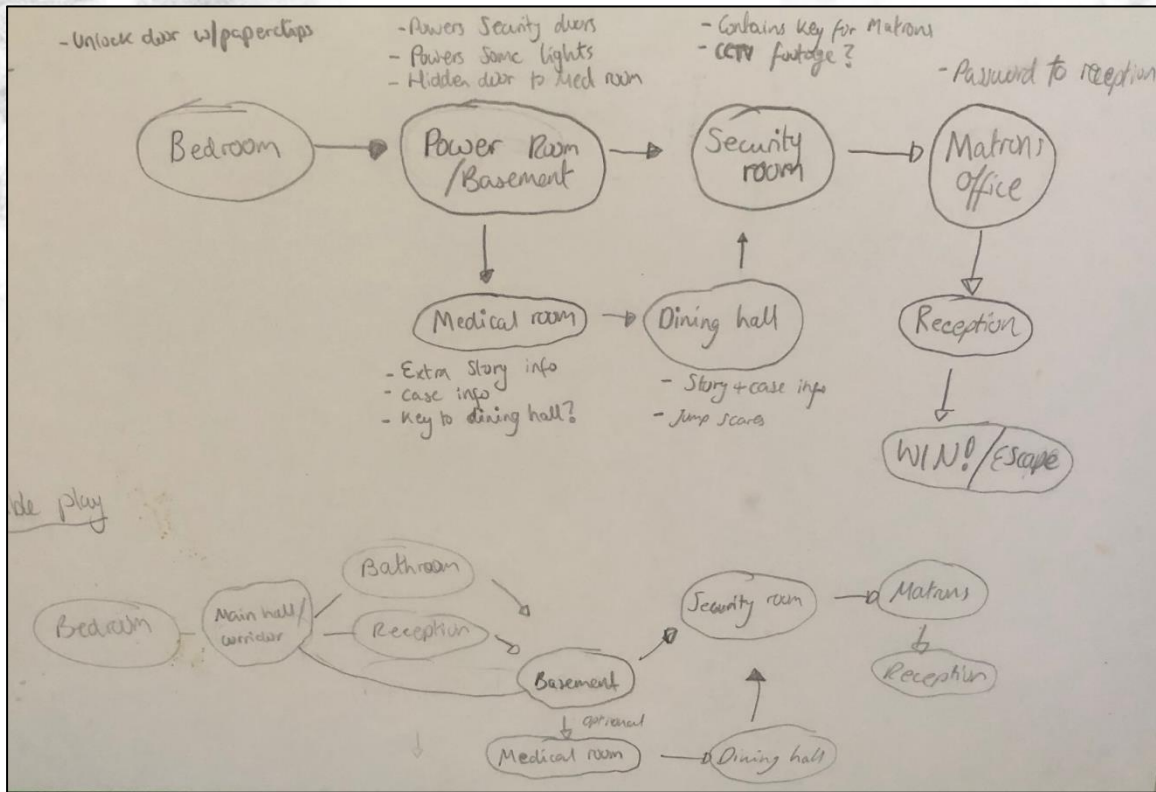 - Unlock door w/paperclips
- Powers Security doors
- Powers Some lights
- Hidden door to Med room
- Contains Key for Matrons
- CCTV footage?
- Password to reception
Bedroom
Power Room
/Basement
Security
room
Matrons
office
Medical room
Dining hall
Reception
- Extra Story info
- case info
- Key to dining hall?
- Story + case info
- Jump scares
WIN!/Escape
play
Bathroom
Bedroom
Main hall/
corridor
Reception
Security room
Matrons
Basement
Reception
optional
Medical room
Dining hall